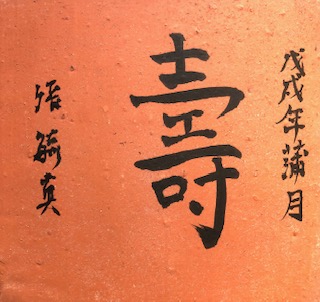 戊戌年蒲月
壽
張毓真